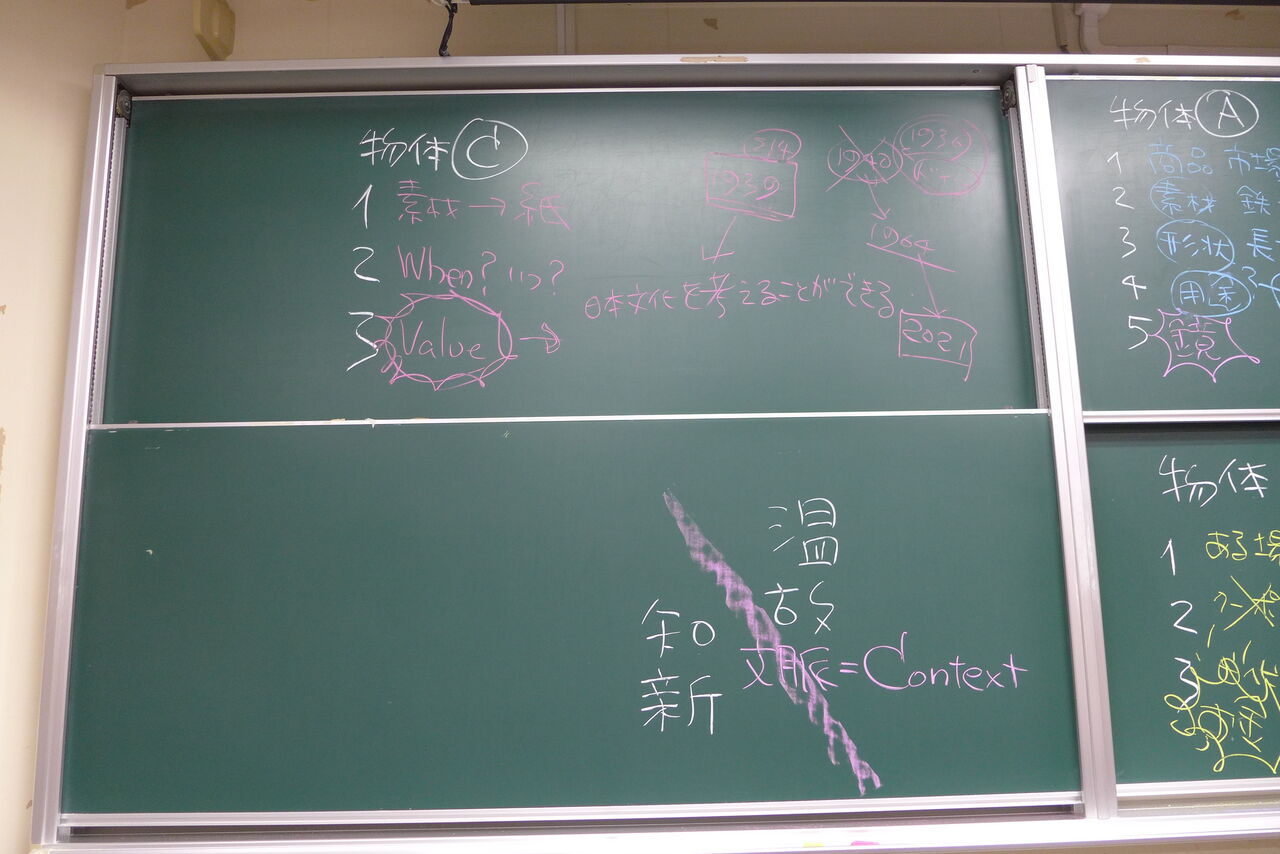 物体 C
1 素材→紙
2 When? いつ?
3 Value →
S14
1939
1940
1936
1964
2021
日本文化を考えることができる
温故
知新
文脈=Context
物体 A
1 商品 市場
2 素材 鉄
3 形状 長
4 用途
5 鏡
物体
1 ある場
2
3